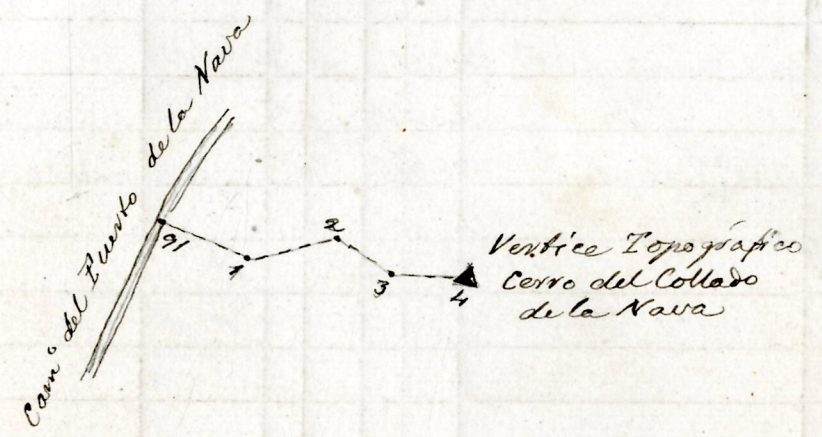 Camº del Puerto de la Nava
91
1
2
3
4
Vertice Topográfico
Cerro del Collado
de la Nava